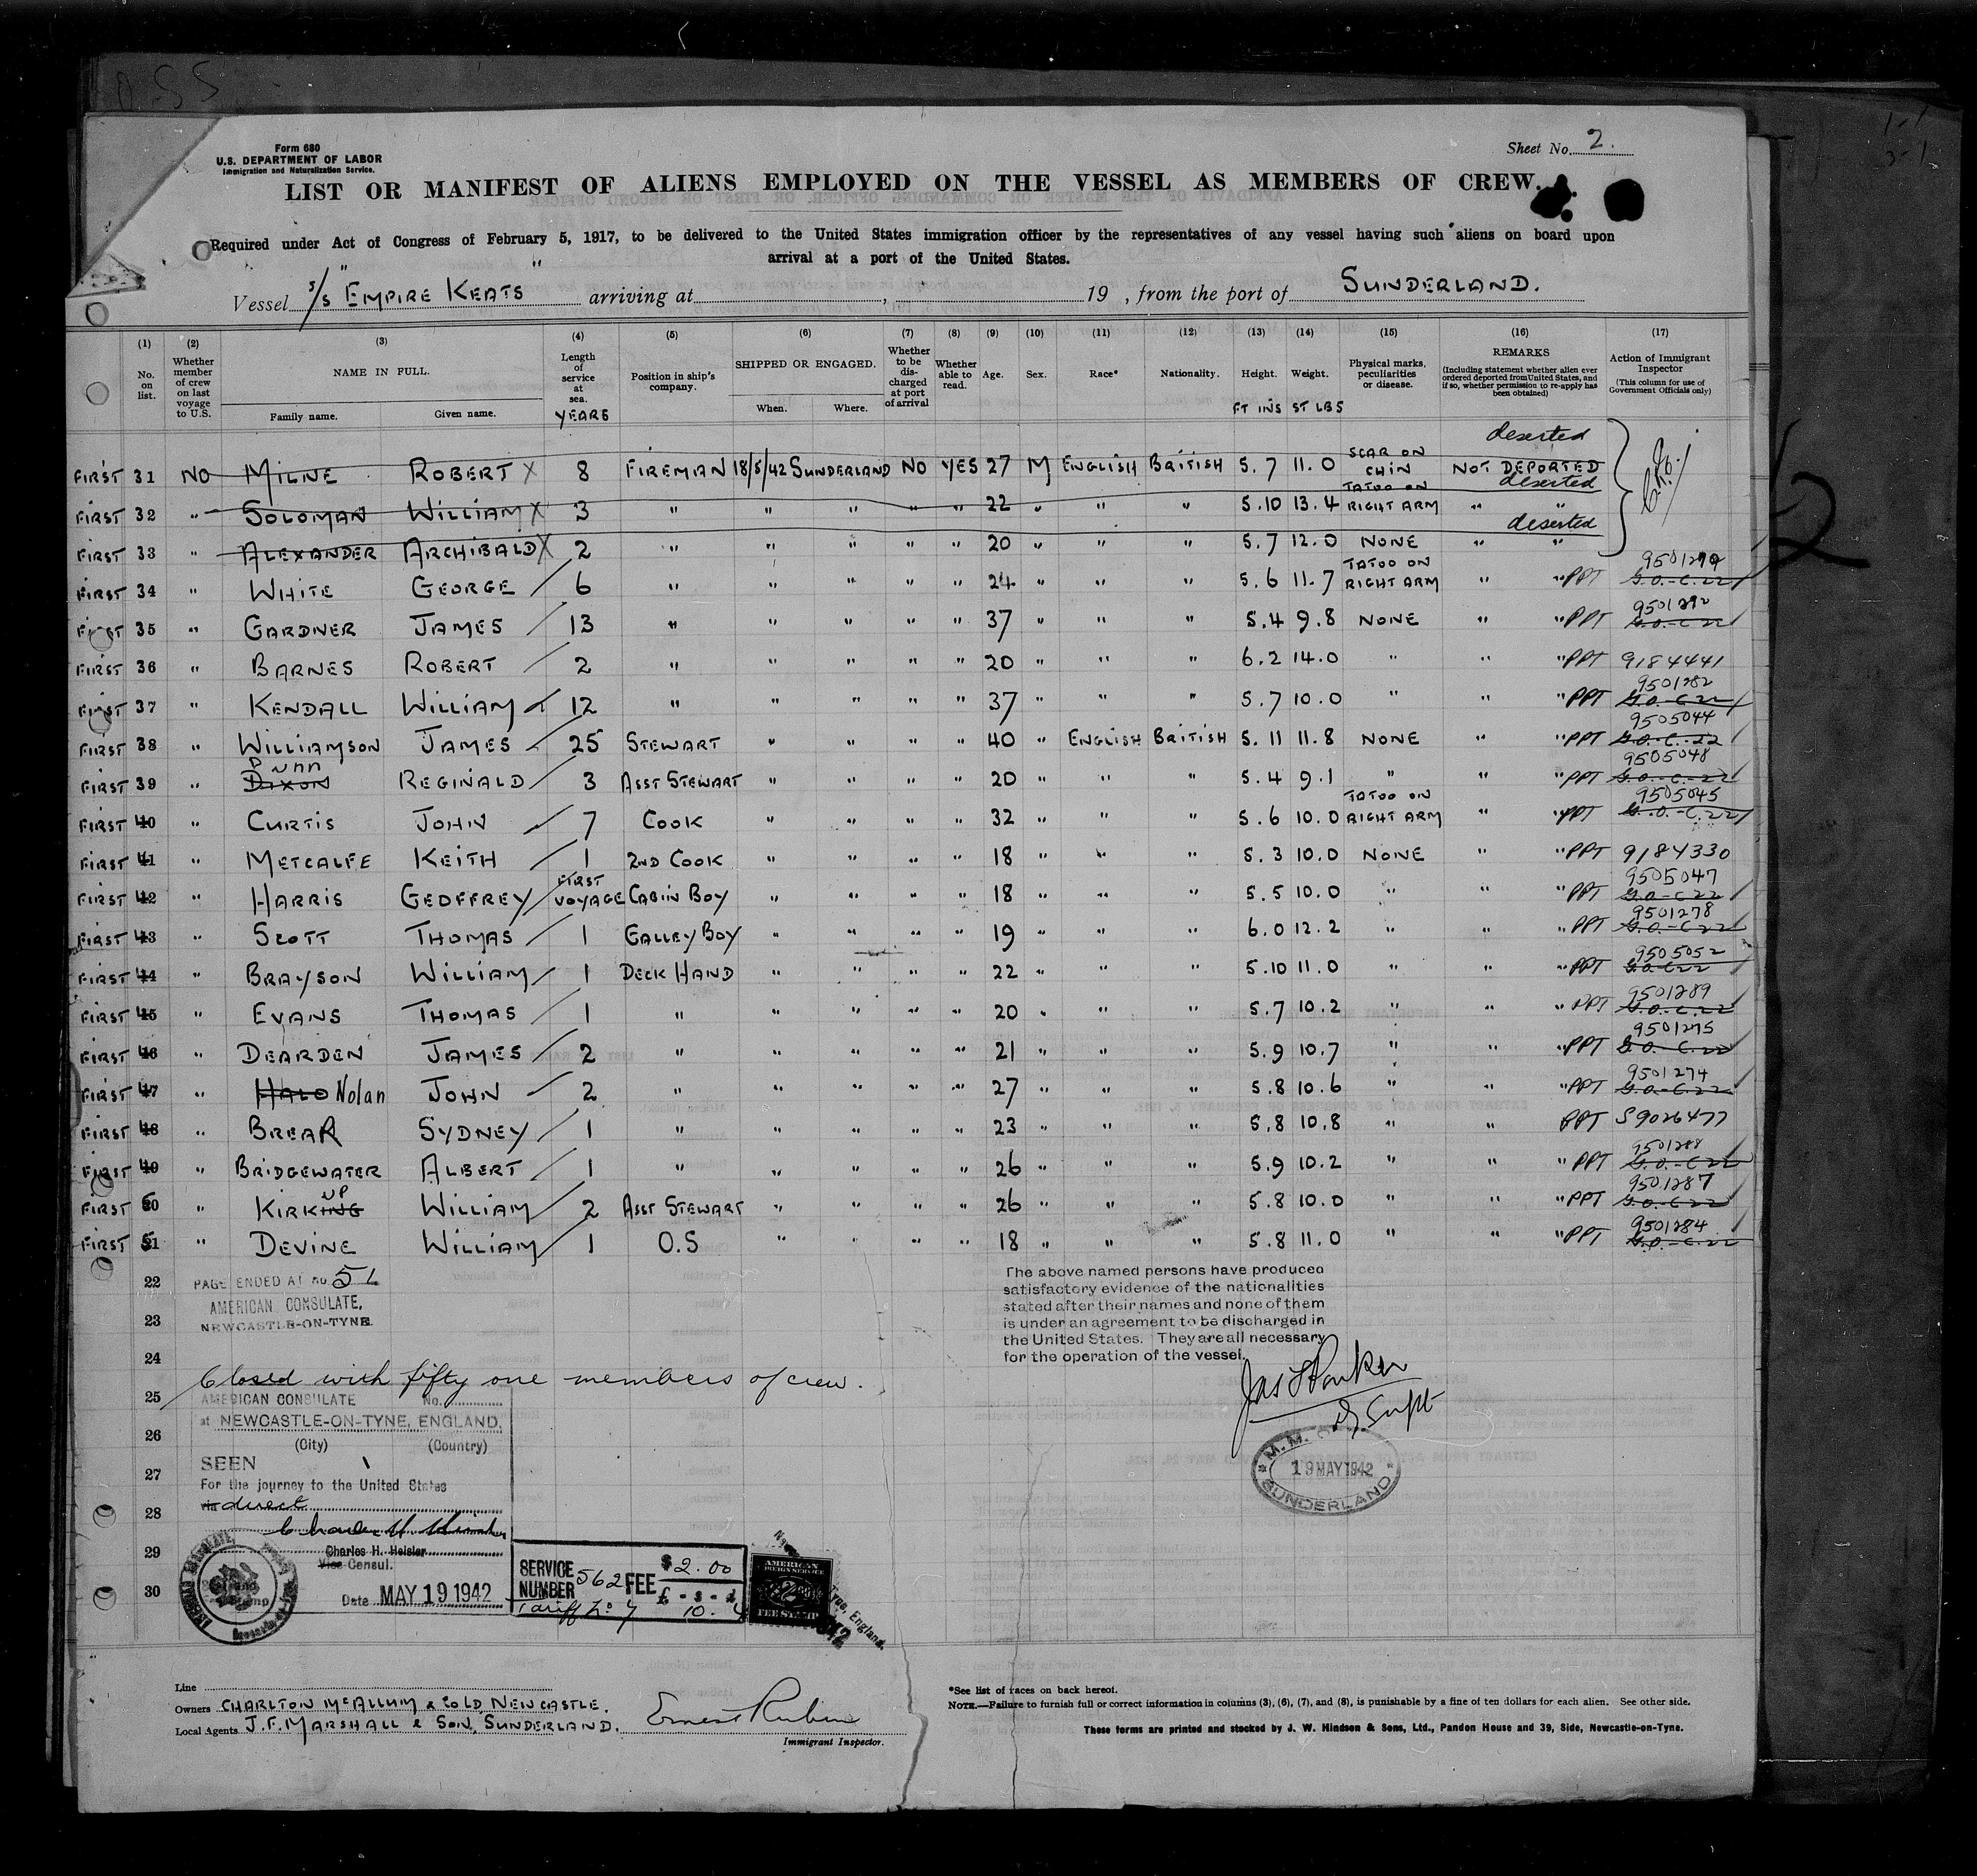 Form 680
U.S. DEPARTMENT OF LABOR
Immigration and Naturalization Service.
Sheet No. 2.
LIST OR MANIFEST OF ALIENS EMPLOYED ON THE VESSEL AS MEMBERS OF CREW.
Required under Act of Congress of February 5, 1917, to be delivered to the United States immigration officer by the representatives of any vessel having such aliens on board upon
arrival at a port of the United States.
Vessel s/s "EMPIRE KEATS" arriving at , 19 , from the port of SUNDERLAND.
(1) No. on list.
(2) Whether member of crew on last voyage to U.S.
(3) NAME IN FULL. Family name. Given name.
(4) Length of service at sea. YEARS
(5) Position in ship's company.
(6) SHIPPED OR ENGAGED. When. Where.
(7) Whether to be discharged at port of arrival
(8) Whether able to read.
(9) Age.
(10) Sex.
(11) Race*
(12) Nationality.
(13) Height. FT INS
(14) Weight. ST LBS
(15) Physical marks, peculiarities or disease.
(16) REMARKS (Including statement whether alien ever ordered deported from United States, and if so, whether permission to re-apply has been obtained)
(17) Action of Immigrant Inspector (This column for use of Government Officials only)
FIRST 31 NO MILNE ROBERT X 8 FIREMAN 18/5/42 SUNDERLAND NO YES 27 M ENGLISH BRITISH 5.7 11.0 SCAR ON CHIN NOT DEPORTED deserted
FIRST 32 " SOLOMAN WILLIAM X 3 " " " " " 22 " " " 5.10 13.4 TATOO ON RIGHT ARM " " deserted
FIRST 33 " ALEXANDER ARCHIBALD X 2 " " " " " 20 " " " 5.7 12.0 NONE " " deserted
FIRST 34 " WHITE GEORGE / 6 " " " " " 24 " " " 5.6 11.7 TATOO ON RIGHT ARM " " PPT G.O.-C.22
FIRST 35 " GARDNER JAMES / 13 " " " " " 37 " " " 5.4 9.8 NONE " " PPT 9501292 G.O.-C.22
FIRST 36 " BARNES ROBERT / 2 " " " " " 20 " " " 6.2 14.0 " " " PPT 9184441
FIRST 37 " KENDALL WILLIAM / 12 " " " " " 37 " " " 5.7 10.0 " " " PPT 9501282 G.O.-C.22
FIRST 38 " WILLIAMSON JAMES / 25 STEWART " " " " 40 " ENGLISH BRITISH 5.11 11.8 NONE " " PPT 9505044 G.O.-C.22
FIRST 39 " DIXON DUNN REGINALD / 3 ASST STEWART " " " " 20 " " " 5.4 9.1 " " " PPT 9505048 G.O.-C.22
FIRST 40 " CURTIS JOHN / 7 COOK " " " " 32 " " " 5.6 10.0 TATOO ON RIGHT ARM " " PPT 9505045 G.O.-C.22
FIRST 41 " METCALFE KEITH / 1 2ND COOK " " " " 18 " " " 5.3 10.0 NONE " " PPT 9184330
FIRST 42 " HARRIS GEOFFREY / FIRST VOYAGE CABIN BOY " " " " 18 " " " 5.5 10.0 " " " PPT 9505047 G.O.-C.22
FIRST 43 " SCOTT THOMAS / 1 GALLEY BOY " " " " 19 " " " 6.0 12.2 " " " PPT 9501278 G.O.-C.22
FIRST 44 " BRAYSON WILLIAM / 1 DECK HAND " " " " 22 " " " 5.10 11.0 " " " PPT 9505052 G.O.-C.22
FIRST 45 " EVANS THOMAS / 1 " " " " " 20 " " " 5.7 10.2 " " " PPT 9501289 G.O.-C.22
FIRST 46 " DEARDEN JAMES / 2 " " " " " 21 " " " 5.9 10.7 " " " PPT 9501275 G.O.-C.22
FIRST 47 " HALO Nolan JOHN / 2 " " " " " 27 " " " 5.8 10.6 " " " PPT 9501274 G.O.-C.22
FIRST 48 " BREAR SYDNEY / 1 " " " " " 23 " " " 5.8 10.8 " " PPT S9026477
FIRST 49 " BRIDGEWATER ALBERT / 1 " " " " " 26 " " " 5.9 10.2 " " " PPT 9501288 G.O.-C.22
FIRST 50 " KIRKING UP WILLIAM / 2 ASST STEWART " " " " 26 " " " 5.8 10.0 " " " PPT 9501287 G.O.-C.22
FIRST 51 " DEVINE WILLIAM / 1 O.S " " " " 18 " " " 5.8 11.0 " " " PPT 9501284 G.O.-C.22
22
23
24
25
26
27
28
29
30
PAGE ENDED AT NO. 51
AMERICAN CONSULATE,
NEWCASTLE-ON-TYNE.
The above named persons have produced
satisfactory evidence of the nationalities
stated after their names and none of them
is under an agreement to be discharged in
the United States. They are all necessary
for the operation of the vessel.
Closed with fifty one members of crew.
AMERICAN CONSULATE No.
at NEWCASTLE-ON-TYNE, ENGLAND,
(City) (Country)
SEEN
For the journey to the United States
via direct
Charles H. Heisler
Vice Consul.
Date MAY 19 1942
M.M.
19 MAY 1942
SUNDERLAND
SERVICE NUMBER 562 FEE $2.00
£ - s - d
Tariff No 7
AMERICAN FOREIGN SERVICE
2
FEE STAMP
Tyne, England.
Line
Owners CHARLTON McALLUM & CO LD, NEWCASTLE.
Local Agents J.F. MARSHALL & SON, SUNDERLAND.
Ernest Rubin
Immigrant Inspector.
*See list of races on back hereof.
NOTE.—Failure to furnish full or correct information in columns (3), (6), (7), and (8), is punishable by a fine of ten dollars for each alien. See other side.
These forms are printed and stocked by J. W. Hindson & Sons, Ltd., Pandon House and 39, Side, Newcastle-on-Tyne.